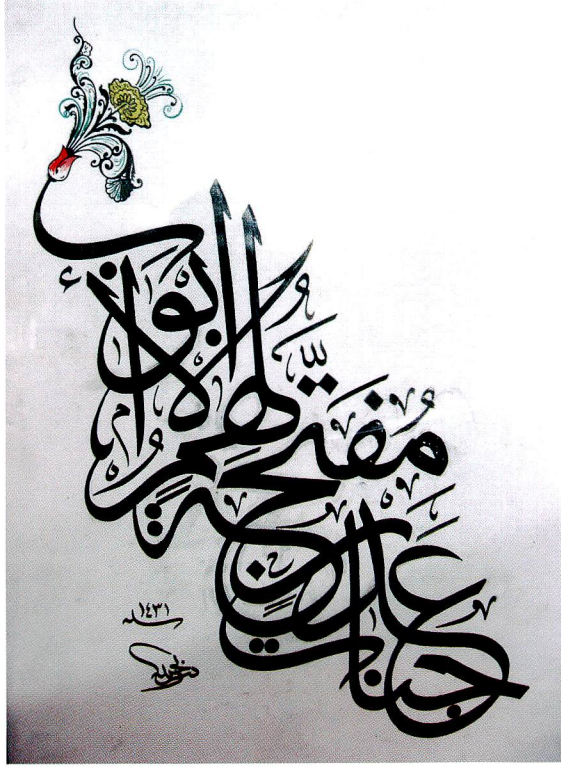 جنات عدن مفتحة لهم الأبواب
سنة ١٤٣١